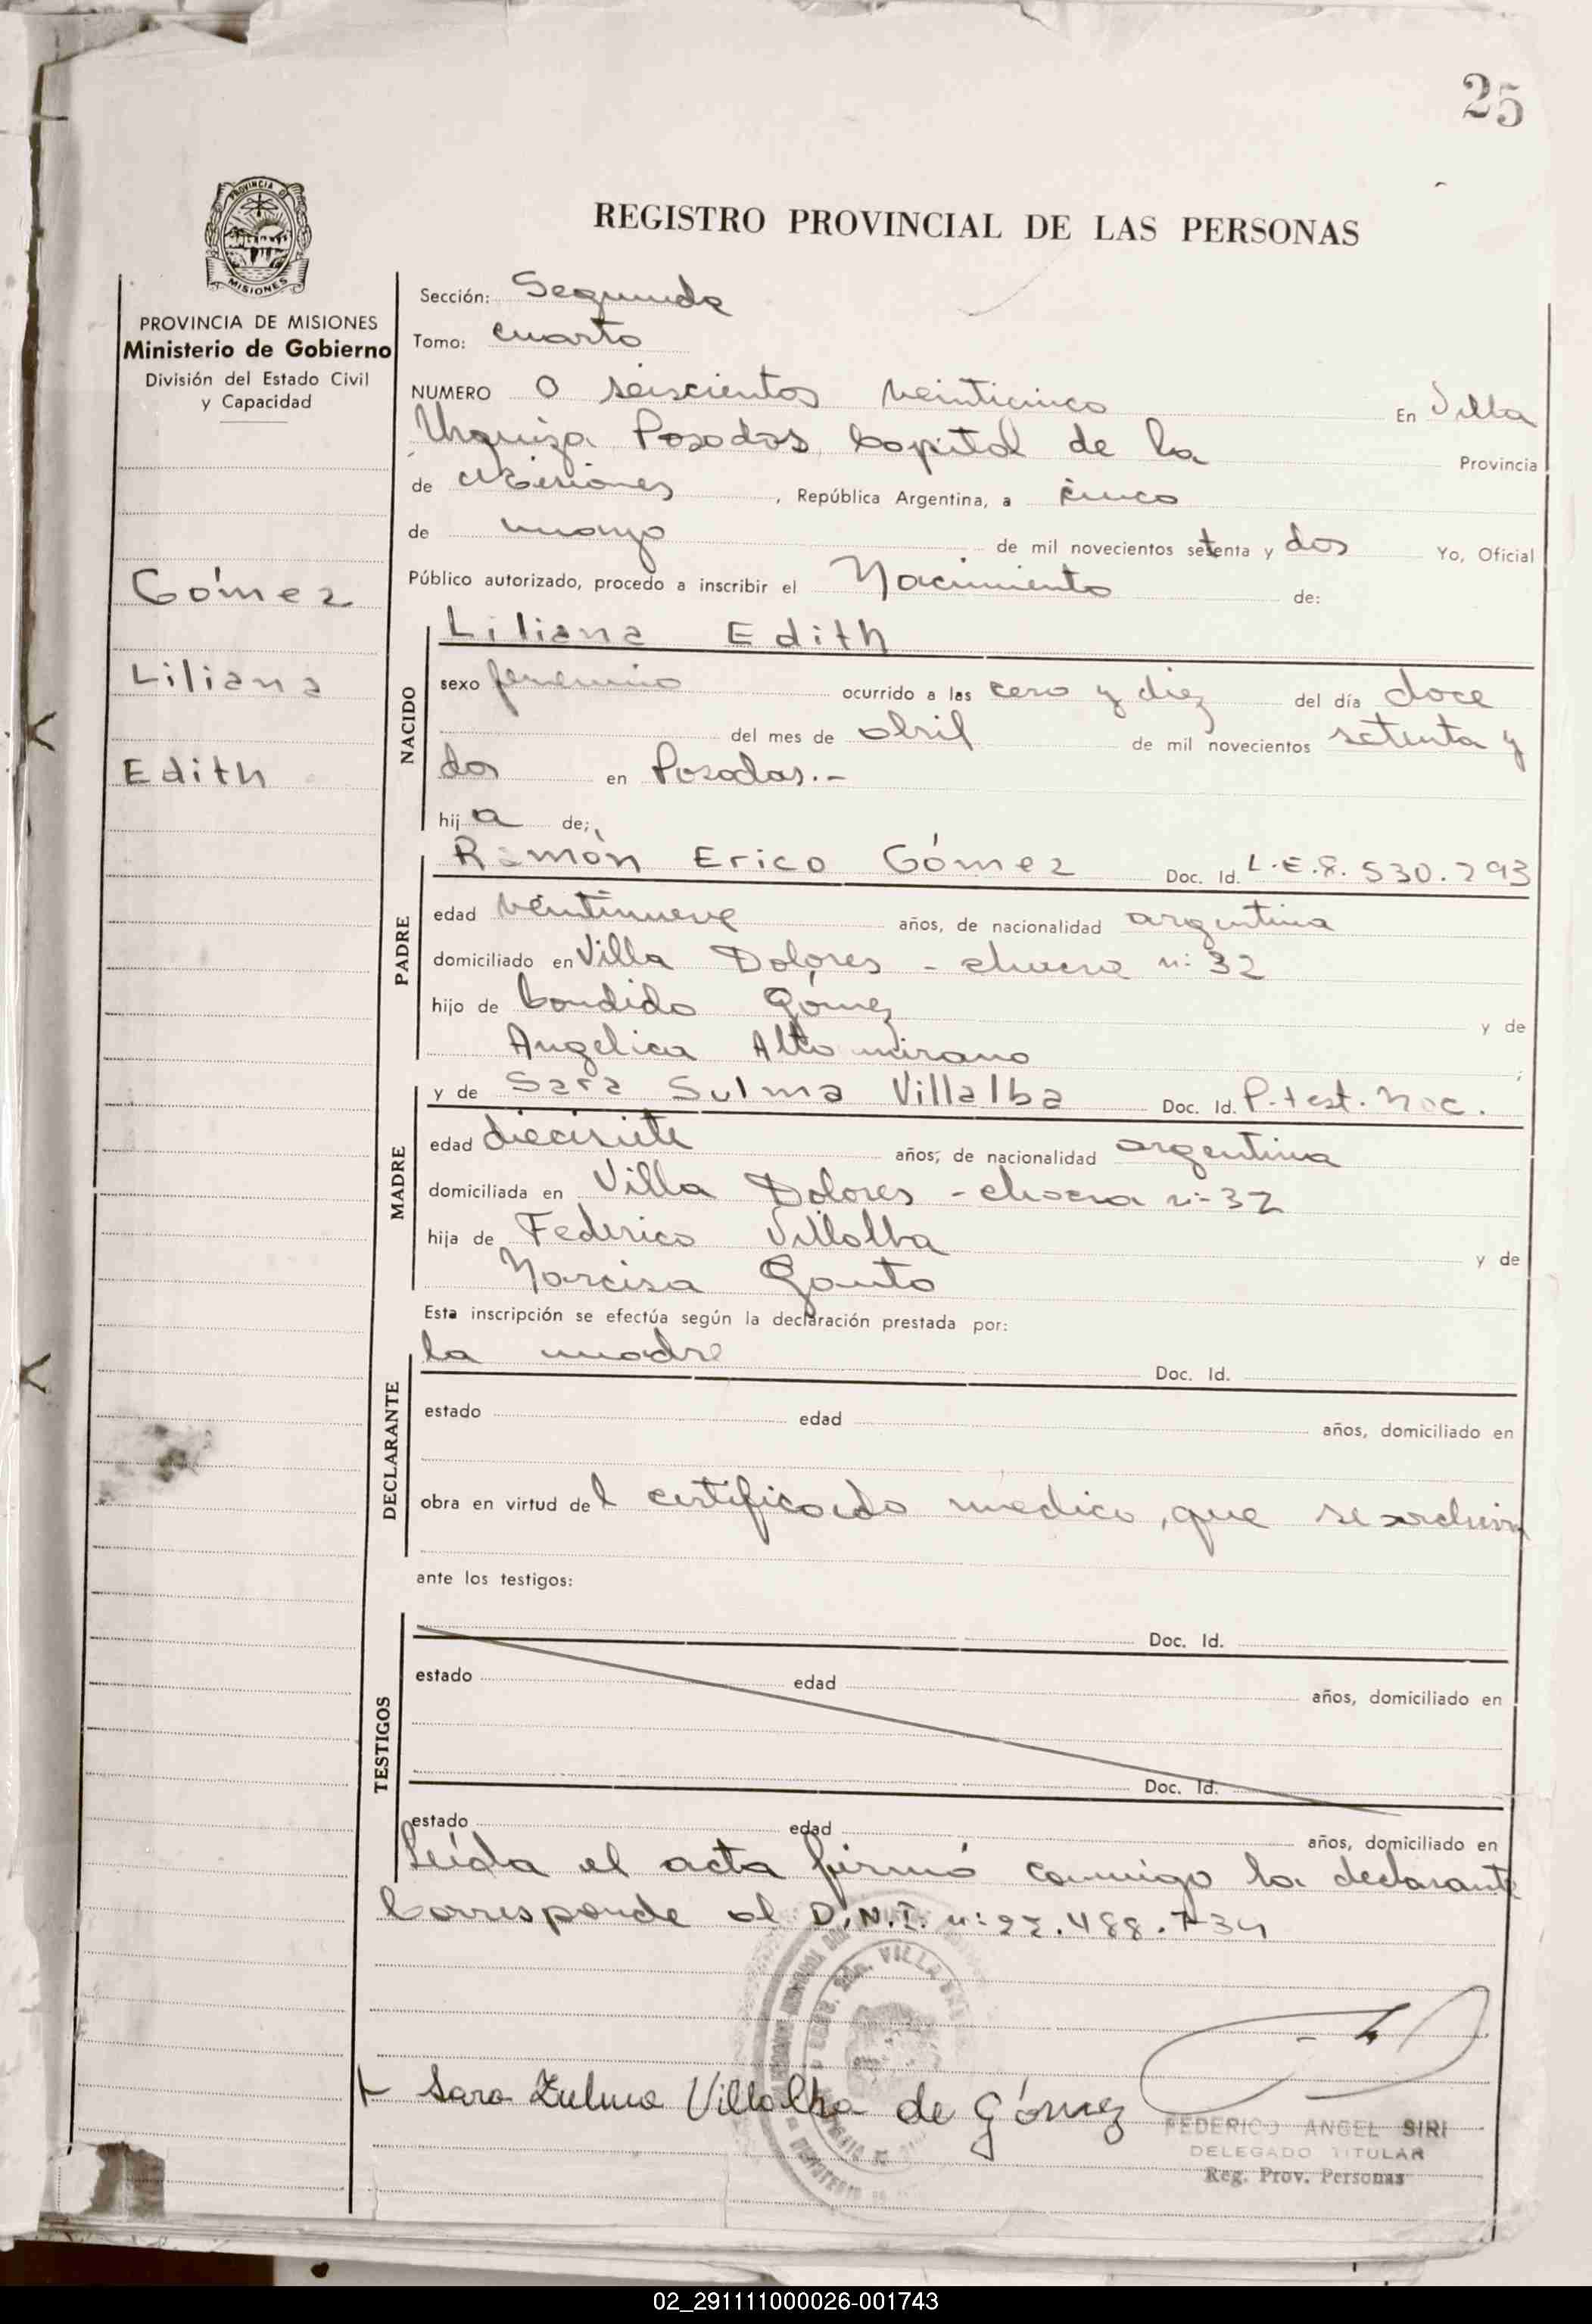 25
PROVINCIA DE
MISIONES
REGISTRO PROVINCIAL DE LAS PERSONAS
PROVINCIA DE MISIONES
Ministerio de Gobierno
División del Estado Civil
y Capacidad
Gómez
Liliana
Edith
Sección: Segunda
Tomo: cuarto
NUMERO 0 seiscientos veinticinco En Villa
Urquiza Posadas Capital de la Provincia
de Misiones, República Argentina, a cinco
de mayo de mil novecientos setenta y dos Yo, Oficial
Público autorizado, procedo a inscribir el Nacimiento de:
NACIDO
Liliana Edith
sexo femenino ocurrido a las cero y diez del día doce
del mes de abril de mil novecientos setenta y
dos en Posadas.-
hija de;
PADRE
Ramón Erico Gómez Doc. Id. L.E.8.530.293
edad veintinueve años, de nacionalidad argentina
domiciliado en Villa Dolores - chacra n: 32
hijo de Candido Gómez y de
Angelica Altamirano ;
MADRE
y de Sara Sulma Villalba Doc. Id. P.test.Nac.
edad diecisiete años; de nacionalidad argentina
domiciliada en Villa Dolores - chacra n:- 32
hija de Federico Villalba y de
Narcisa Gauto
Esta inscripción se efectúa según la declaración prestada por:
DECLARANTE
la madre Doc. Id.
estado edad años, domiciliado en
obra en virtud del certificado medico, que se archiva
ante los testigos:
TESTIGOS
Doc. Id.
estado edad años, domiciliado en
Doc. Id.
estado edad años, domiciliado en
Leída el acta firmó conmigo la declarante
Corresponde al D.N.I. n: 22.488.734
Sara Zulma Villalba de Gómez
FEDERICO ANGEL SIRI
DELEGADO TITULAR
Reg. Prov. Personas
02_291111000026-001743